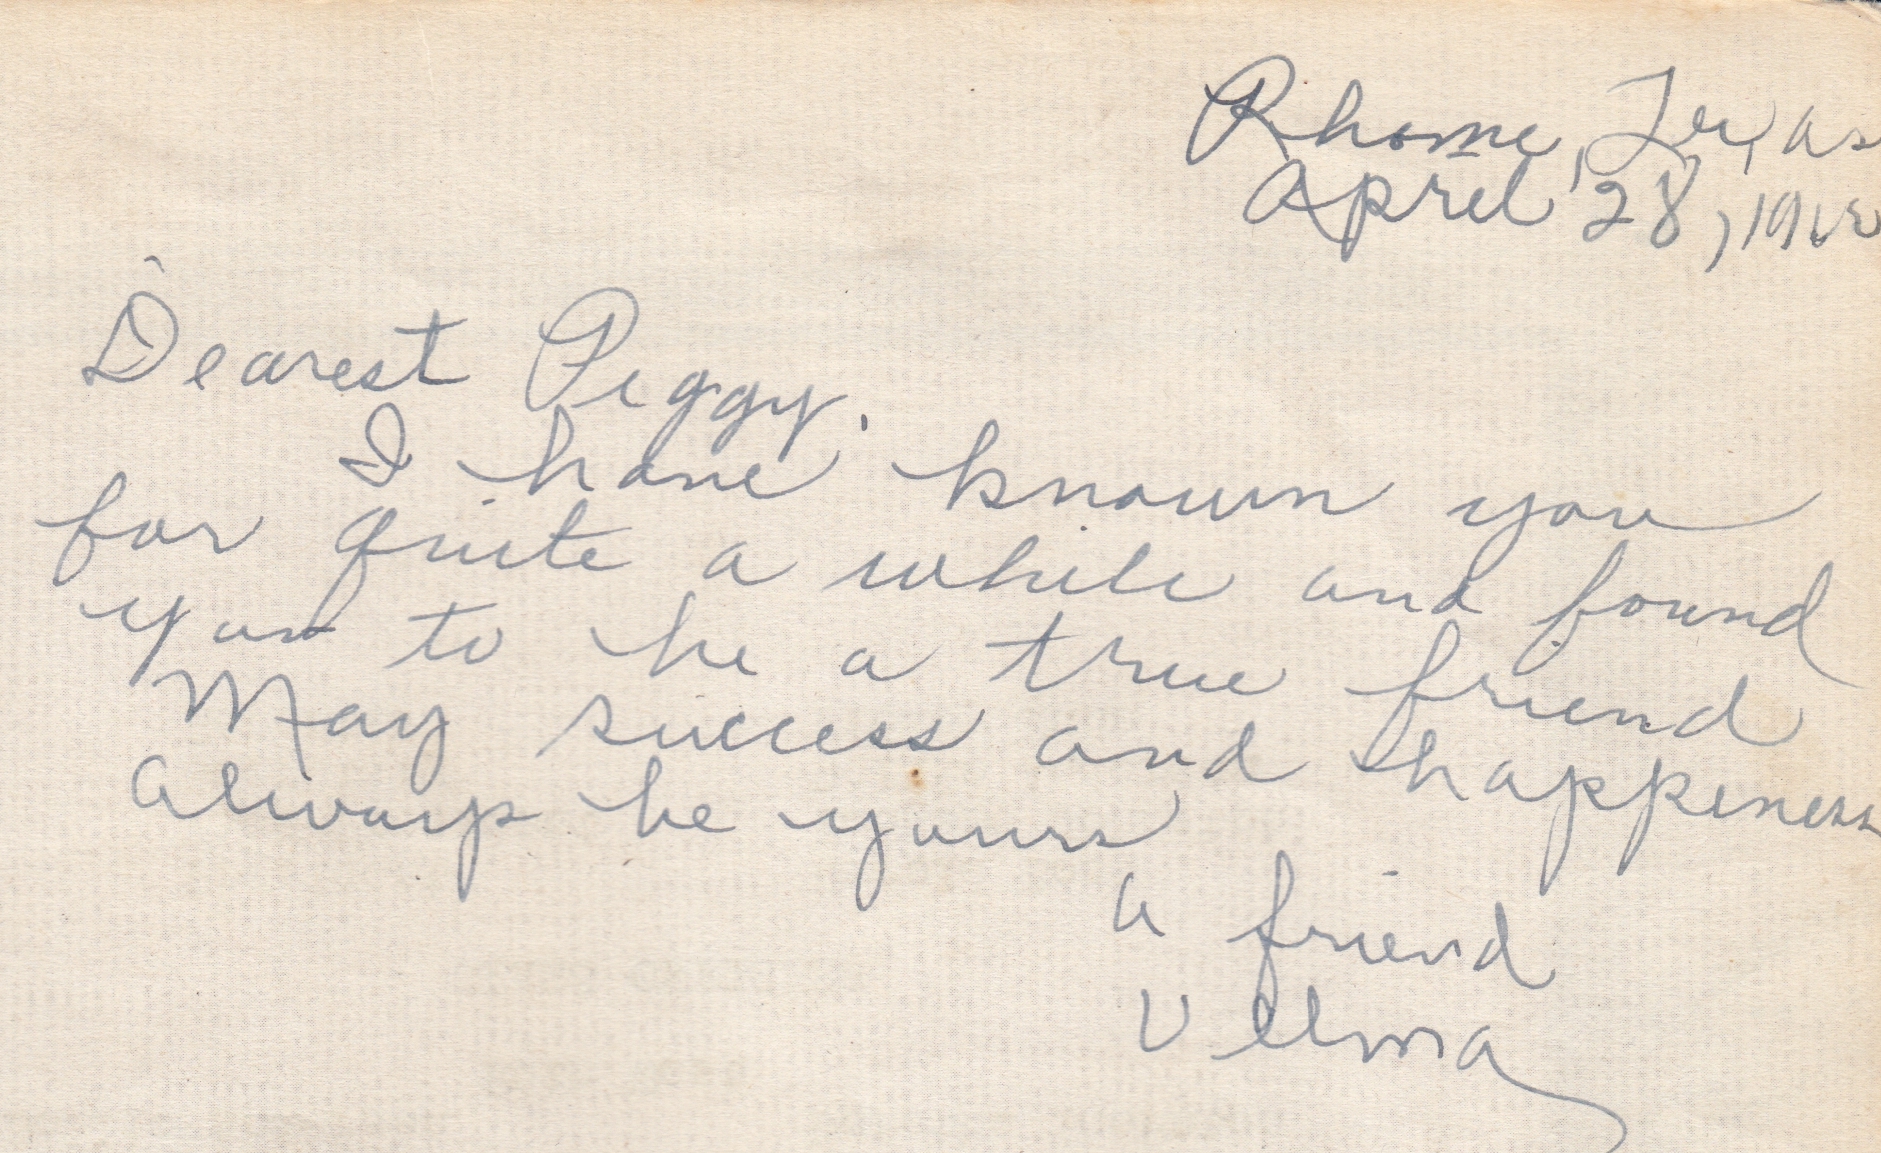 Rhome, Texas
April 28, 19
Dearest Peggy,
I have known you
for quite a while and found
you to be a true friend
May success and happiness
always be yours
a friend
Velma